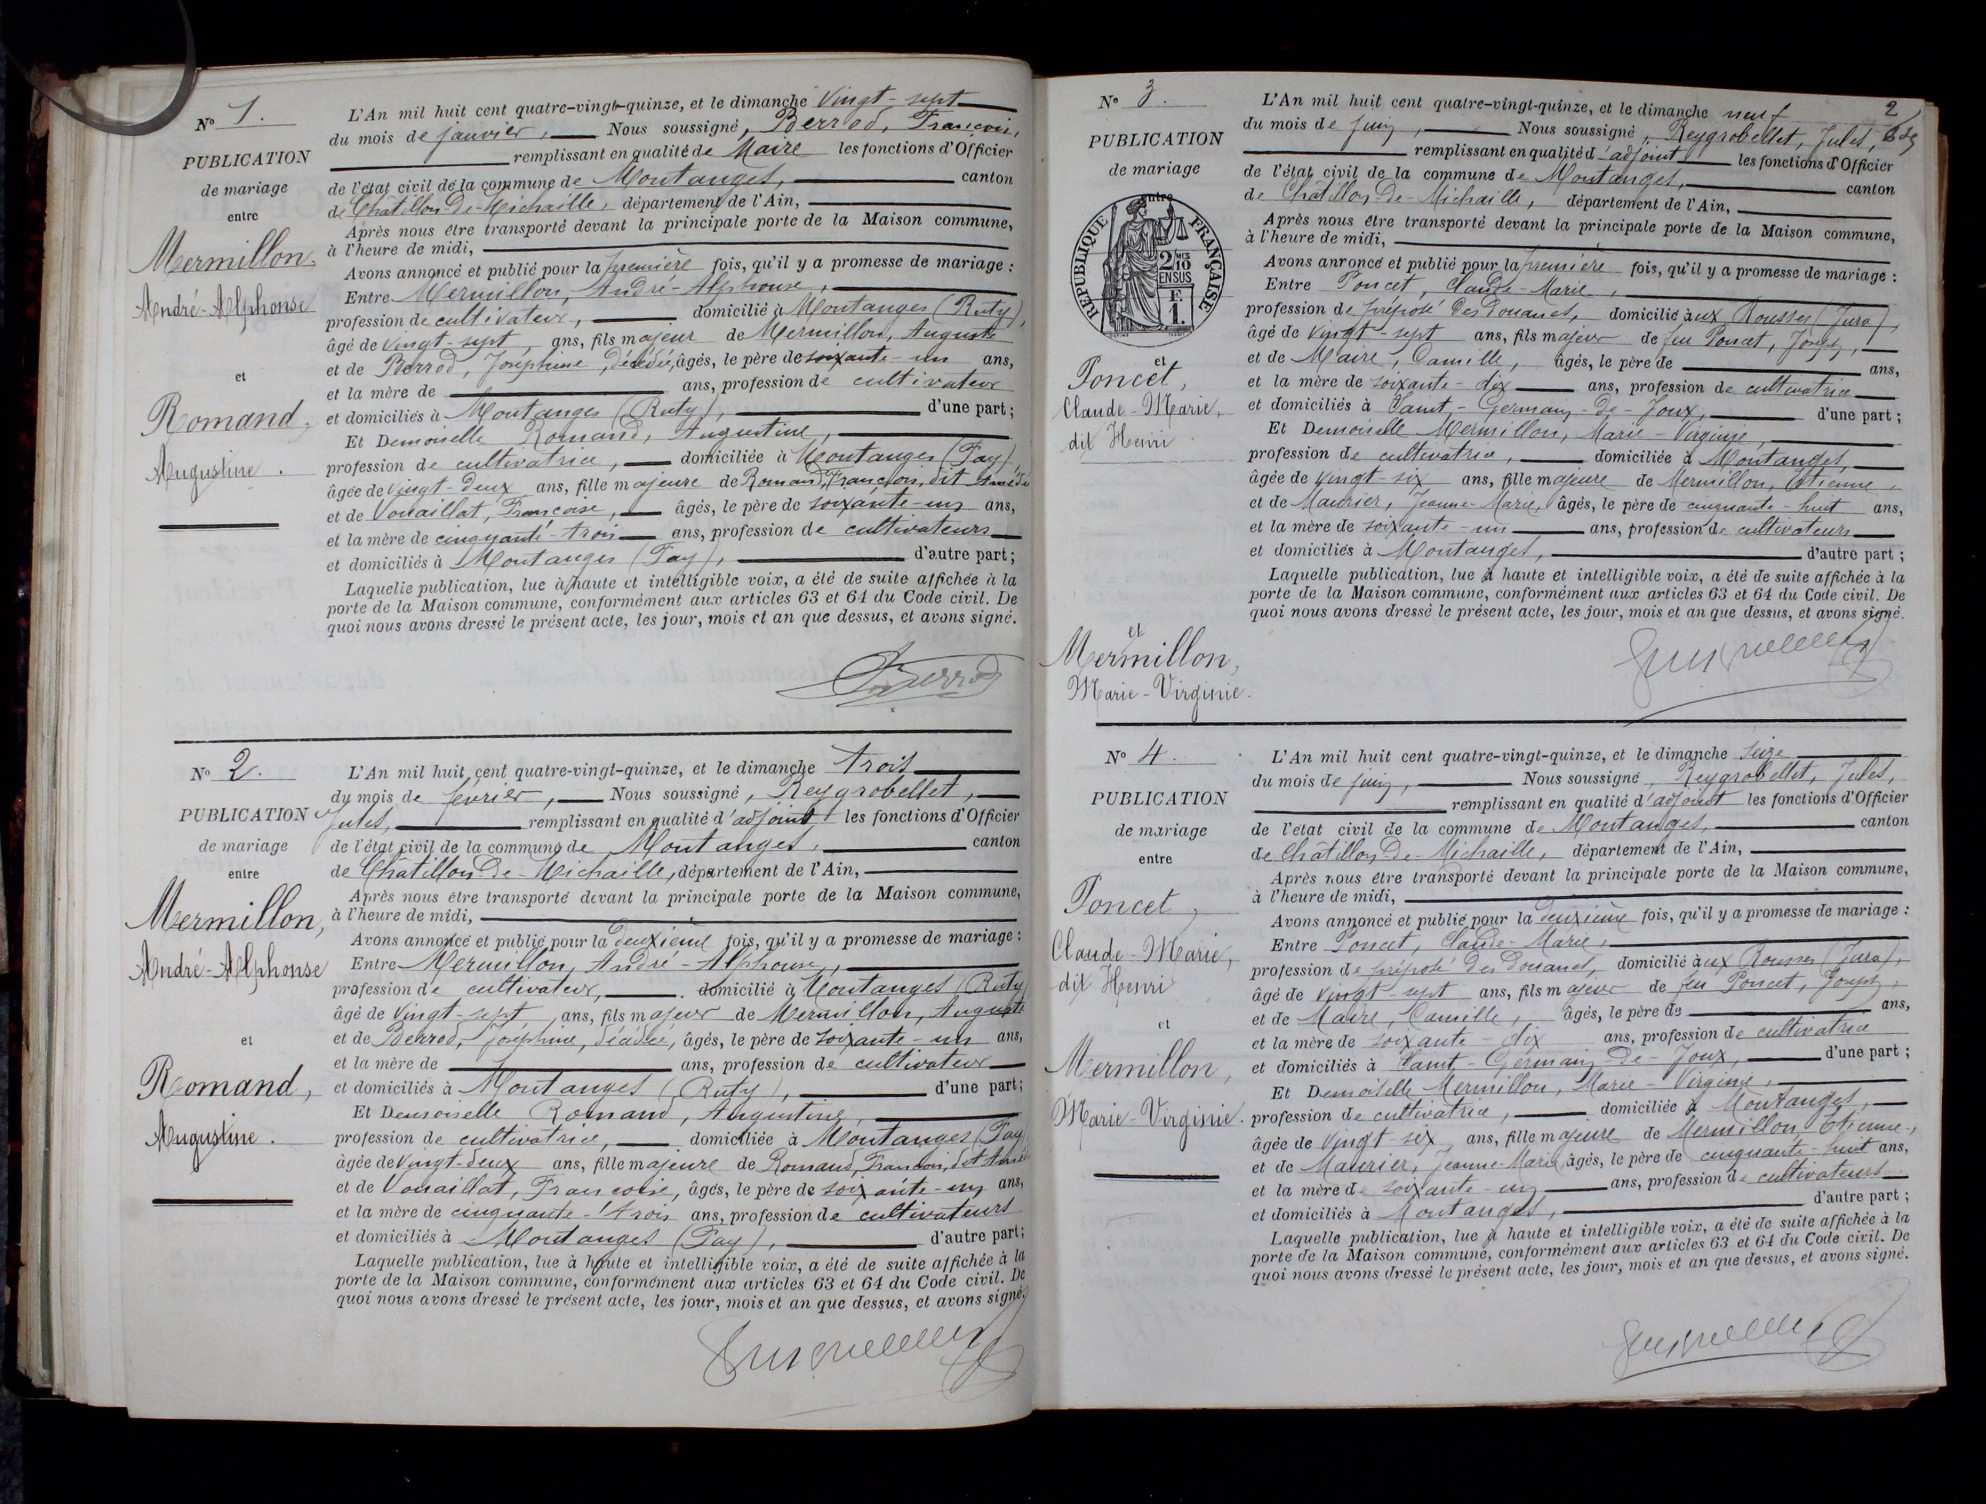 N° 1.
PUBLICATION
de mariage
entre
Mermillon,
André-Alphonse
et
Romand,
Augustine.
L'An mil huit cent quatre-vingt-quinze, et le dimanche vingt-sept
du mois de janvier, Nous soussigné, Berrod, François,
remplissant en qualité de Maire les fonctions d'Officier
de l'état civil de la commune de Montanges, canton
de Châtillon-de-Michaille, département de l'Ain,
Après nous être transporté devant la principale porte de la Maison commune,
à l'heure de midi,
Avons annoncé et publié pour la première fois, qu'il y a promesse de mariage :
Entre Mermillon, André-Alphonse,
profession de cultivateur, domicilié à Montanges (Ruty),
âgé de vingt-sept ans, fils majeur de Mermillon, Auguste
et de Berrod, Joséphine, décédée, âgés, le père de soixante-un ans,
et la mère de ans, profession de cultivateur
et domiciliés à Montanges (Ruty), d'une part;
Et Demoiselle Romand, Augustine,
profession de cultivatrice, domiciliée à Montanges (Fay)
âgée de vingt-deux ans, fille majeure de Romand, François, dit
et de Vouaillat, Françoise, âgés, le père de soixante-un ans,
et la mère de cinquante-trois ans, profession de cultivateurs
et domiciliés à Montanges (Fay), d'autre part;
Laquelle publication, lue à haute et intelligible voix, a été de suite affichée à la
porte de la Maison commune, conformément aux articles 63 et 64 du Code civil. De
quoi nous avons dressé le présent acte, les jour, mois et an que dessus, et avons signé.
Berrod
N° 2.
PUBLICATION
de mariage
entre
Mermillon,
André-Alphonse
et
Romand,
Augustine.
L'An mil huit cent quatre-vingt-quinze, et le dimanche trois
du mois de février, Nous soussigné, Reygrobellet,
Jules, remplissant en qualité d'adjoint les fonctions d'Officier
de l'état civil de la commune de Montanges, canton
de Châtillon-de-Michaille, département de l'Ain,
Après nous être transporté devant la principale porte de la Maison commune,
à l'heure de midi,
Avons annoncé et publié pour la deuxième fois, qu'il y a promesse de mariage :
Entre Mermillon, André-Alphonse,
profession de cultivateur, domicilié à Montanges (Ruty)
âgé de vingt-sept ans, fils majeur de Mermillon, Auguste
et de Berrod, Joséphine, décédée, âgés, le père de soixante-un ans,
et la mère de ans, profession de cultivateur
et domiciliés à Montanges (Ruty), d'une part;
Et Demoiselle Romand, Augustine,
profession de cultivatrice, domiciliée à Montanges (Fay)
âgée de vingt-deux ans, fille majeure de Romand, François, dit
et de Vouaillat, Françoise, âgés, le père de soixante-un ans,
et la mère de cinquante-trois ans, profession de cultivateurs
et domiciliés à Montanges (Fay), d'autre part;
Laquelle publication, lue à haute et intelligible voix, a été de suite affichée à la
porte de la Maison commune, conformément aux articles 63 et 64 du Code civil. De
quoi nous avons dressé le présent acte, les jour, mois et an que dessus, et avons signé.
2
N° 3.
PUBLICATION
de mariage
entre
REPUBLIQUE FRANÇAISE
2/10 EN SUS
F. 1.
et
Poncet,
Claude-Marie,
dit Henri
et
Mermillon,
Marie-Virginie.
L'An mil huit cent quatre-vingt-quinze, et le dimanche neuf
du mois de juin, Nous soussigné, Reygrobellet, Jules,
remplissant en qualité d'adjoint les fonctions d'Officier
de l'état civil de la commune de Montanges, canton
de Châtillon-de-Michaille, département de l'Ain,
Après nous être transporté devant la principale porte de la Maison commune,
à l'heure de midi,
Avons annoncé et publié pour la première fois, qu'il y a promesse de mariage :
Entre Poncet, Claude-Marie,
profession de préposé des Douanes, domicilié aux Rousses (Jura),
âgé de vingt-sept ans, fils majeur de feu Poncet, Joseph,
et de Maire, Camille, âgés, le père de ans,
et la mère de soixante-dix ans, profession de cultivatrice
et domiciliés à Saint-Germain-de-Joux, d'une part;
Et Demoiselle Mermillon, Marie-Virginie,
profession de cultivatrice, domiciliée à Montanges,
âgée de vingt-six ans, fille majeure de Mermillon, Etienne,
et de Maurier, Jeanne-Marie, âgés, le père de cinquante-huit ans,
et la mère de soixante-un ans, profession de cultivateurs
et domiciliés à Montanges, d'autre part;
Laquelle publication, lue à haute et intelligible voix, a été de suite affichée à la
porte de la Maison commune, conformément aux articles 63 et 64 du Code civil. De
quoi nous avons dressé le présent acte, les jour, mois et an que dessus, et avons signé.
N° 4.
PUBLICATION
de mariage
entre
Poncet,
Claude-Marie,
dit Henri
et
Mermillon,
Marie-Virginie.
L'An mil huit cent quatre-vingt-quinze, et le dimanche seize
du mois de juin, Nous soussigné, Reygrobellet, Jules,
remplissant en qualité d'adjoint les fonctions d'Officier
de l'état civil de la commune de Montanges, canton
de Châtillon-de-Michaille, département de l'Ain,
Après nous être transporté devant la principale porte de la Maison commune,
à l'heure de midi,
Avons annoncé et publié pour la deuxième fois, qu'il y a promesse de mariage :
Entre Poncet, Claude-Marie,
profession de préposé des Douanes, domicilié aux Rousses (Jura),
âgé de vingt-sept ans, fils majeur de feu Poncet, Joseph,
et de Maire, Camille, âgés, le père de ans,
et la mère de soixante-dix ans, profession de cultivatrice
et domiciliés à Saint-Germain-de-Joux, d'une part;
Et Demoiselle Mermillon, Marie-Virginie,
profession de cultivatrice, domiciliée à Montanges,
âgée de vingt-six ans, fille majeure de Mermillon Etienne,
et de Maurier, Jeanne-Marie, âgés, le père de cinquante-huit ans,
et la mère de soixante-un ans, profession de cultivateurs
et domiciliés à Montanges, d'autre part;
Laquelle publication, lue à haute et intelligible voix, a été de suite affichée à la
porte de la Maison commune, conformément aux articles 63 et 64 du Code civil. De
quoi nous avons dressé le présent acte, les jour, mois et an que dessus, et avons signé.